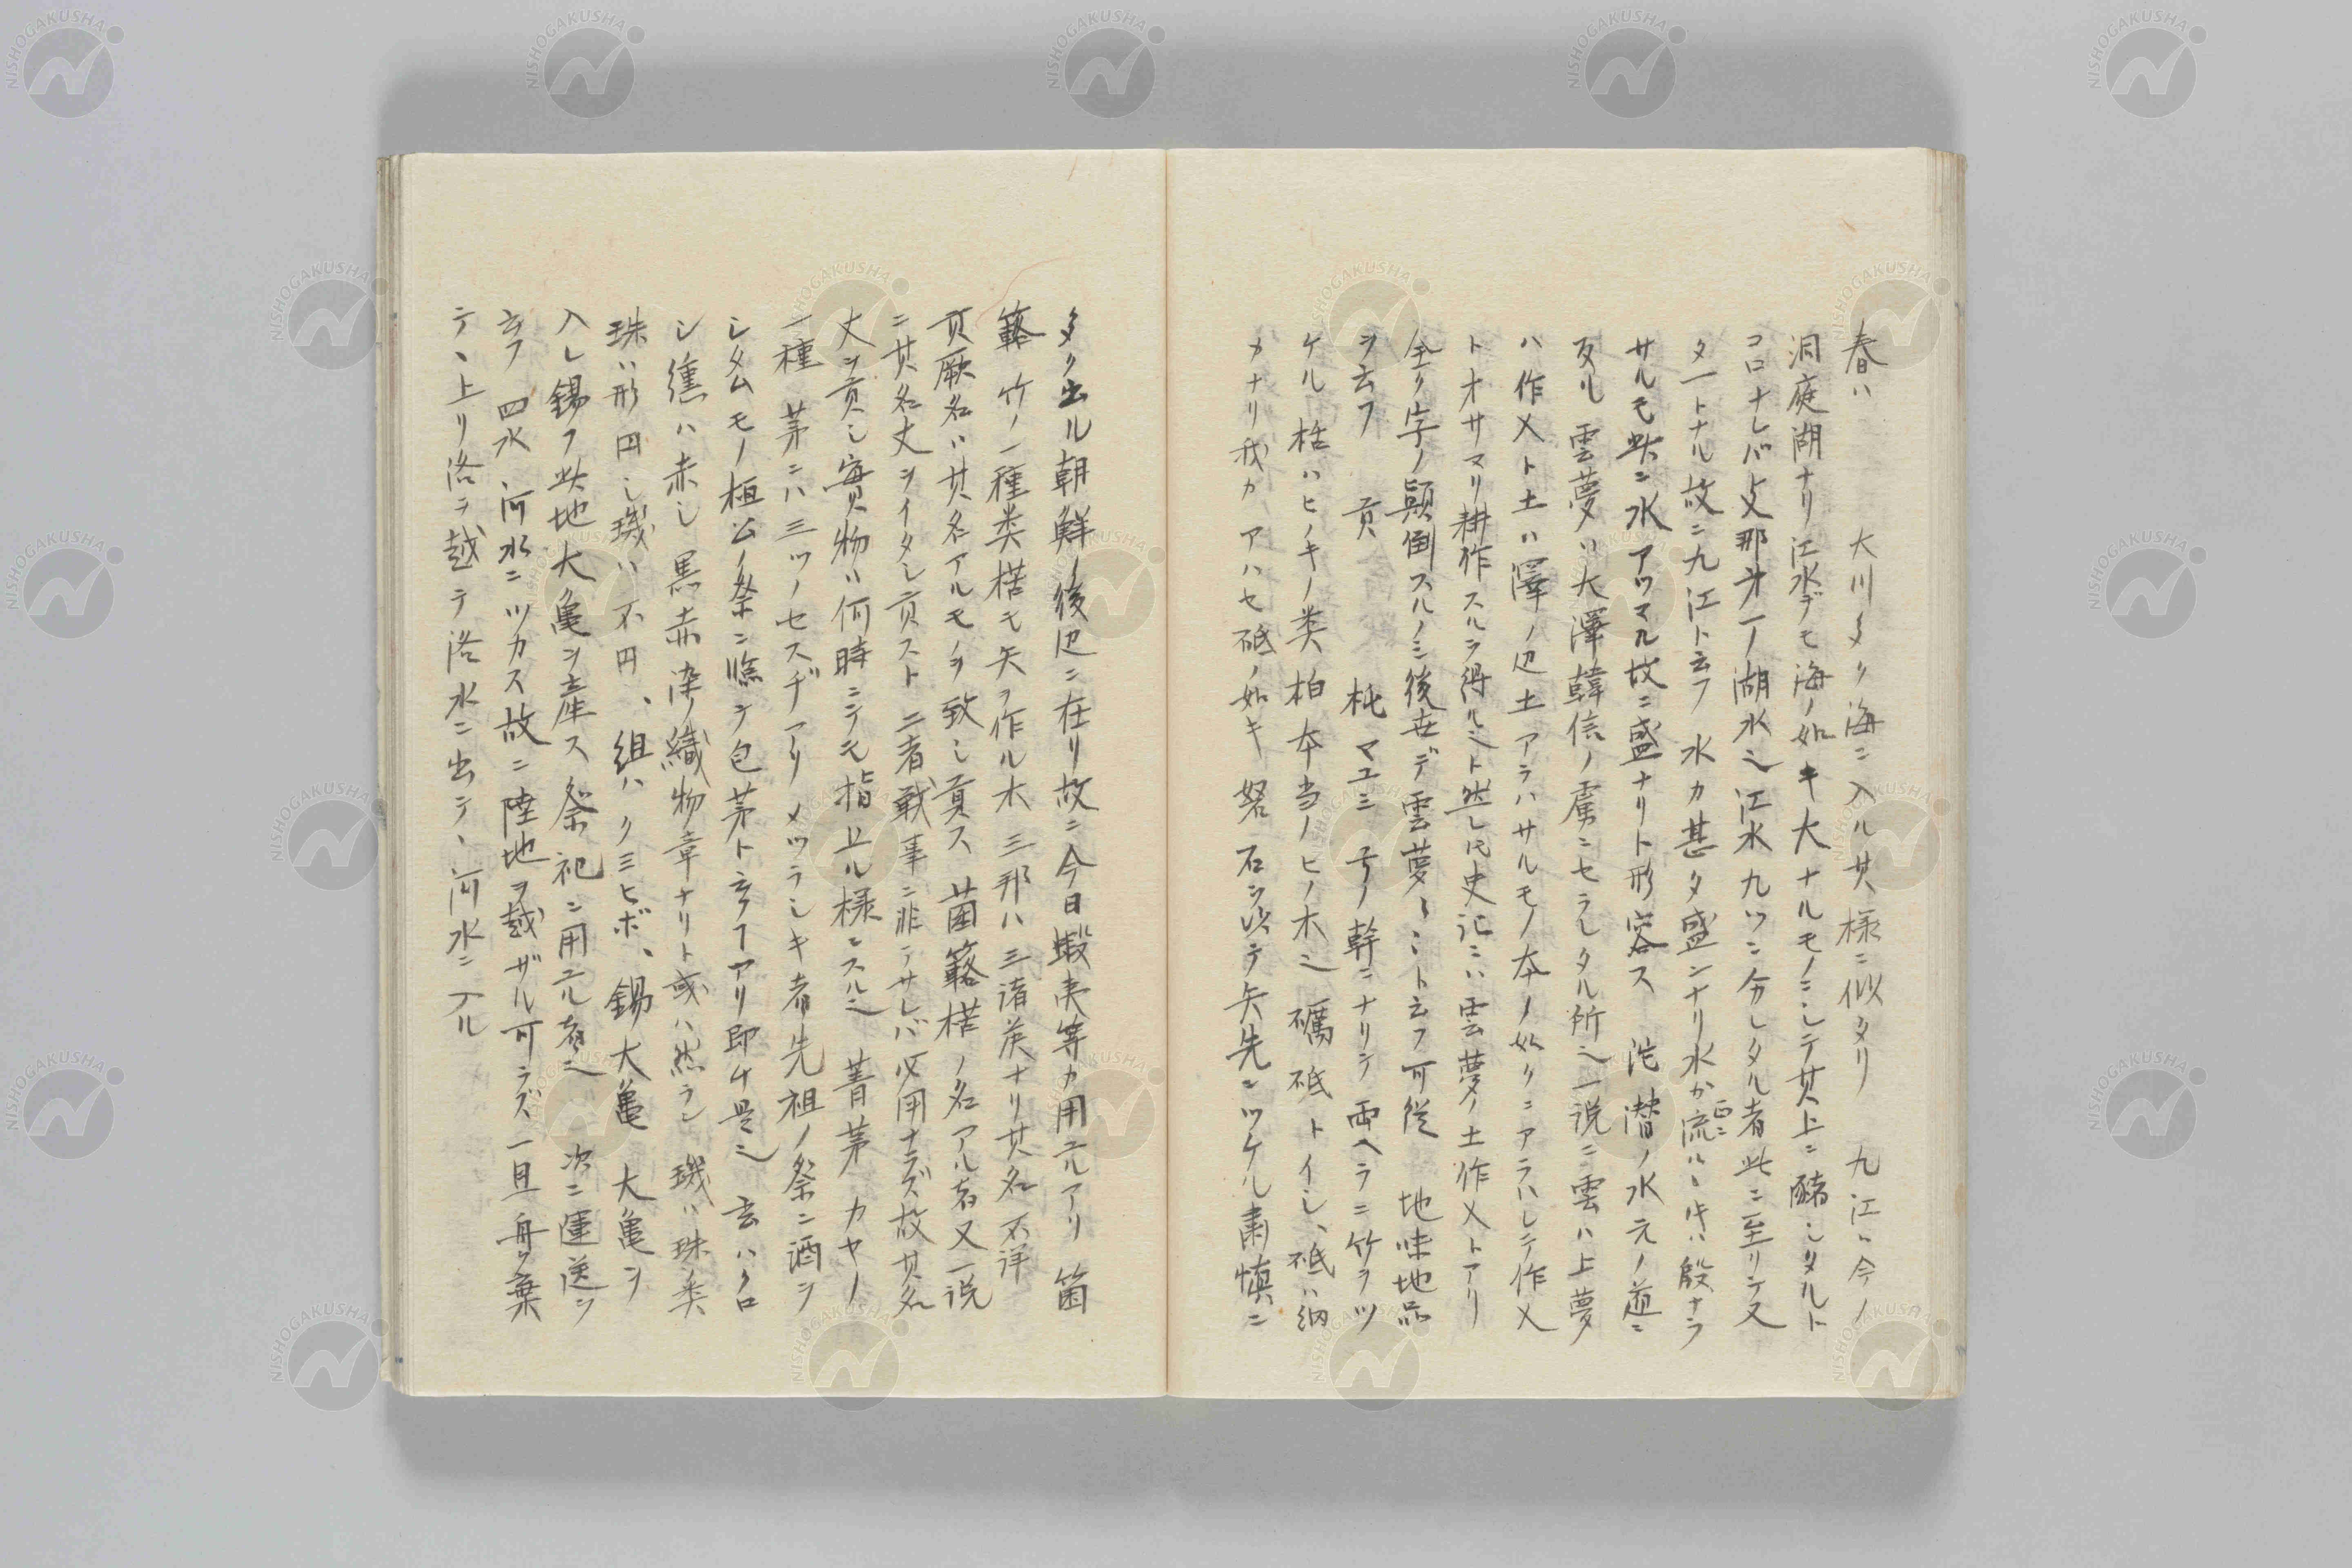 春ハ 大川多ク海ニ入ル其様ニ似タリ 九江ハ今ノ
洞庭湖ナリ江水デモ海ノ如キ大ナルモノニシテ其上ニ豬シタルト
コロナレバ支那第一ノ湖水也江水九ツニ分レタル者此ニ至リテ又
タ一トナル故ニ九江ト云フ 水カ甚タ盛ンナリ水カ流ルヽ時ハ殷ナラ
サルモ此ニ水アツマル故ニ盛ナリト形容ス 沱潜ノ水元ノ道ニ
反ル 雲夢ハ大澤韓信ノ虜ニセラレタル所也一説ニ雲ハ上夢
ハ作乂ト土ハ澤ノ辺土アラハサルモノ本ノ如クニアラハレテ作乂
トオサマリ耕作スルヲ得ル也ト然レ氏史記ニハ雲夢ノ土作乂トアリ
全ク字ノ顛倒スルノミ後世デ雲夢〻〻ト云フ可從 地味地品
ヲ云フ 貢 杶 マユミ 弓ノ幹ニナリテ両ヘラニ竹ヲツ
ケル 栝ハヒノキノ類 柏 本当ノヒノ木也 礪砥 トイシ、砥ハ納
カナリ我カアハセ砥ノ如キ 砮 石ヲ以テ矢先ニツケル肅慎ニ
多ク出ル朝鮮ノ後辺ニ在リ故ニ今日蝦夷等カ用エルアリ 箘
簵 竹ノ一種类楛モ矢ヲ作ル木 三邦ハ三諸侯ナリ其名不詳
貢厥名ハ其名アルモノヲ致シ貢ス 箘簵楛ノ名アル者又一説
ニ其名丈ヲイタシ貢スト 二者戦事ニ非テサレバ必用ナラズ故其名
丈ヲ貢シ實物ハ何時ニテモ指上ル様ニスル也 菁茅 カヤノ
一種 茅ニハ三ツノセスヂアリ メツラシキ者先祖ノ祭ニ酒ヲ
シタムモノ桓公ノ祭ニ臨テ包茅ト云フヿアリ即チ是也 玄ハクロ
シ纁ハ赤シ 黒赤染ノ織物ノ章ナリト或ハ然ラン 璣ハ珠ノ类
珠ハ形円シ璣ハ不円、組ハクミヒボ、錫大亀 大亀ヲ
入レ錫フ此地大亀ヲ産ス祭祀ニ用エル者也 次ニ運送ヲ
云フ 四水、河水ニツカス故ニ陸地ヲ越ザル可ラズ一旦舟ヲ棄
テヽ上リ洛ヲ越テ洛水ニ出テヽ河水ニ入ル